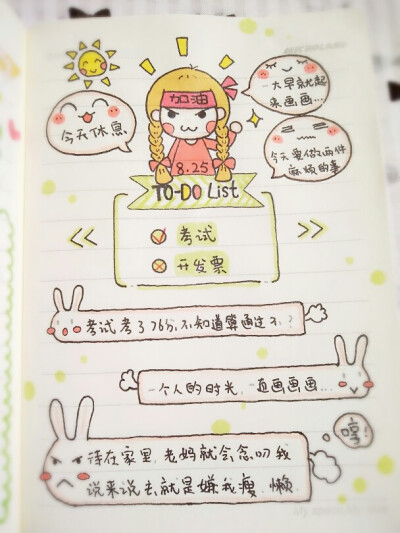 加油
今天休息
一大早就起
来画画...
今天要做两件
麻烦的事
8.25
TO-DO List
考试
开发票
考试考了76分,不知道算通过不?
一个人的时光,一直画画画...
哼!
待在家里,老妈就会念叨我
说来说去就是嫌我瘦、懒